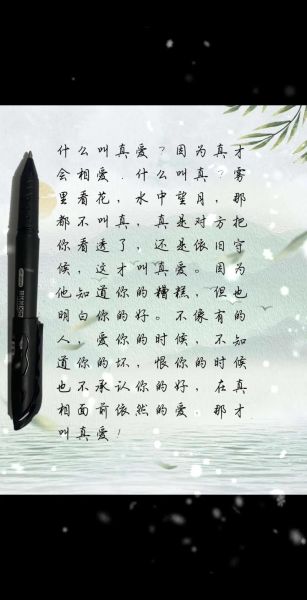 什么叫真爱？因为真才
会相爱．什么叫真？雾
里看花，水中望月，那
都不叫真，真是对方把
你看透了，还是依旧守
候，这才叫真爱。因为
他知道你的糟糕，但也
明白你的好。不像有的
人，爱你的时候，不知
道你的坏，恨你的时候
也不承认你的好，在真
相面前依然的爱．那才
叫真爱！